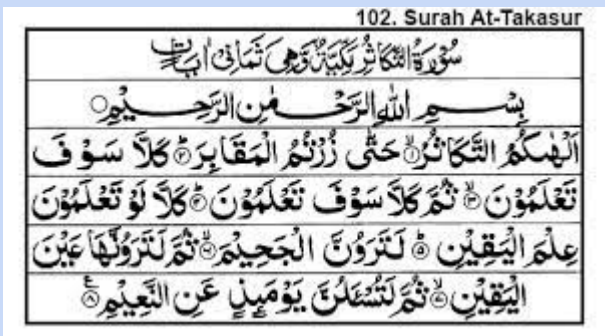 102. Surah At-Takasur
سُوْرَةُ التَّكَاثُرِ مَكِّيَّةٌ وَّهِيَ ثَمَانِيْ اٰيَاتٍ
بِسْمِ اللهِ الرَّحْمٰنِ الرَّحِيْمِ ○
اَلْهٰىكُمُ التَّكَاثُرُ ۙ‏﴿۱﴾ حَتّٰى زُرْتُمُ الْمَقَابِرَ ؕ‏﴿۲﴾ كَلَّا سَوْفَ
تَعْلَمُوْنَ ۙ‏﴿۳﴾ ثُمَّ كَلَّا سَوْفَ تَعْلَمُوْنَ ؕ‏﴿۴﴾ كَلَّا لَوْ تَعْلَمُوْنَ
عِلْمَ الْيَقِيْنِ ؕ‏﴿۵﴾ لَتَرَوُنَّ الْجَحِيْمَ ۙ‏﴿۶﴾ ثُمَّ لَتَرَوُنَّهَا عَيْنَ
الْيَقِيْنِ ۙ‏﴿۷﴾ ثُمَّ لَتُسْـَٔلُنَّ يَوْمَئِذٍ عَنِ النَّعِيْمِ ﴿۸﴾